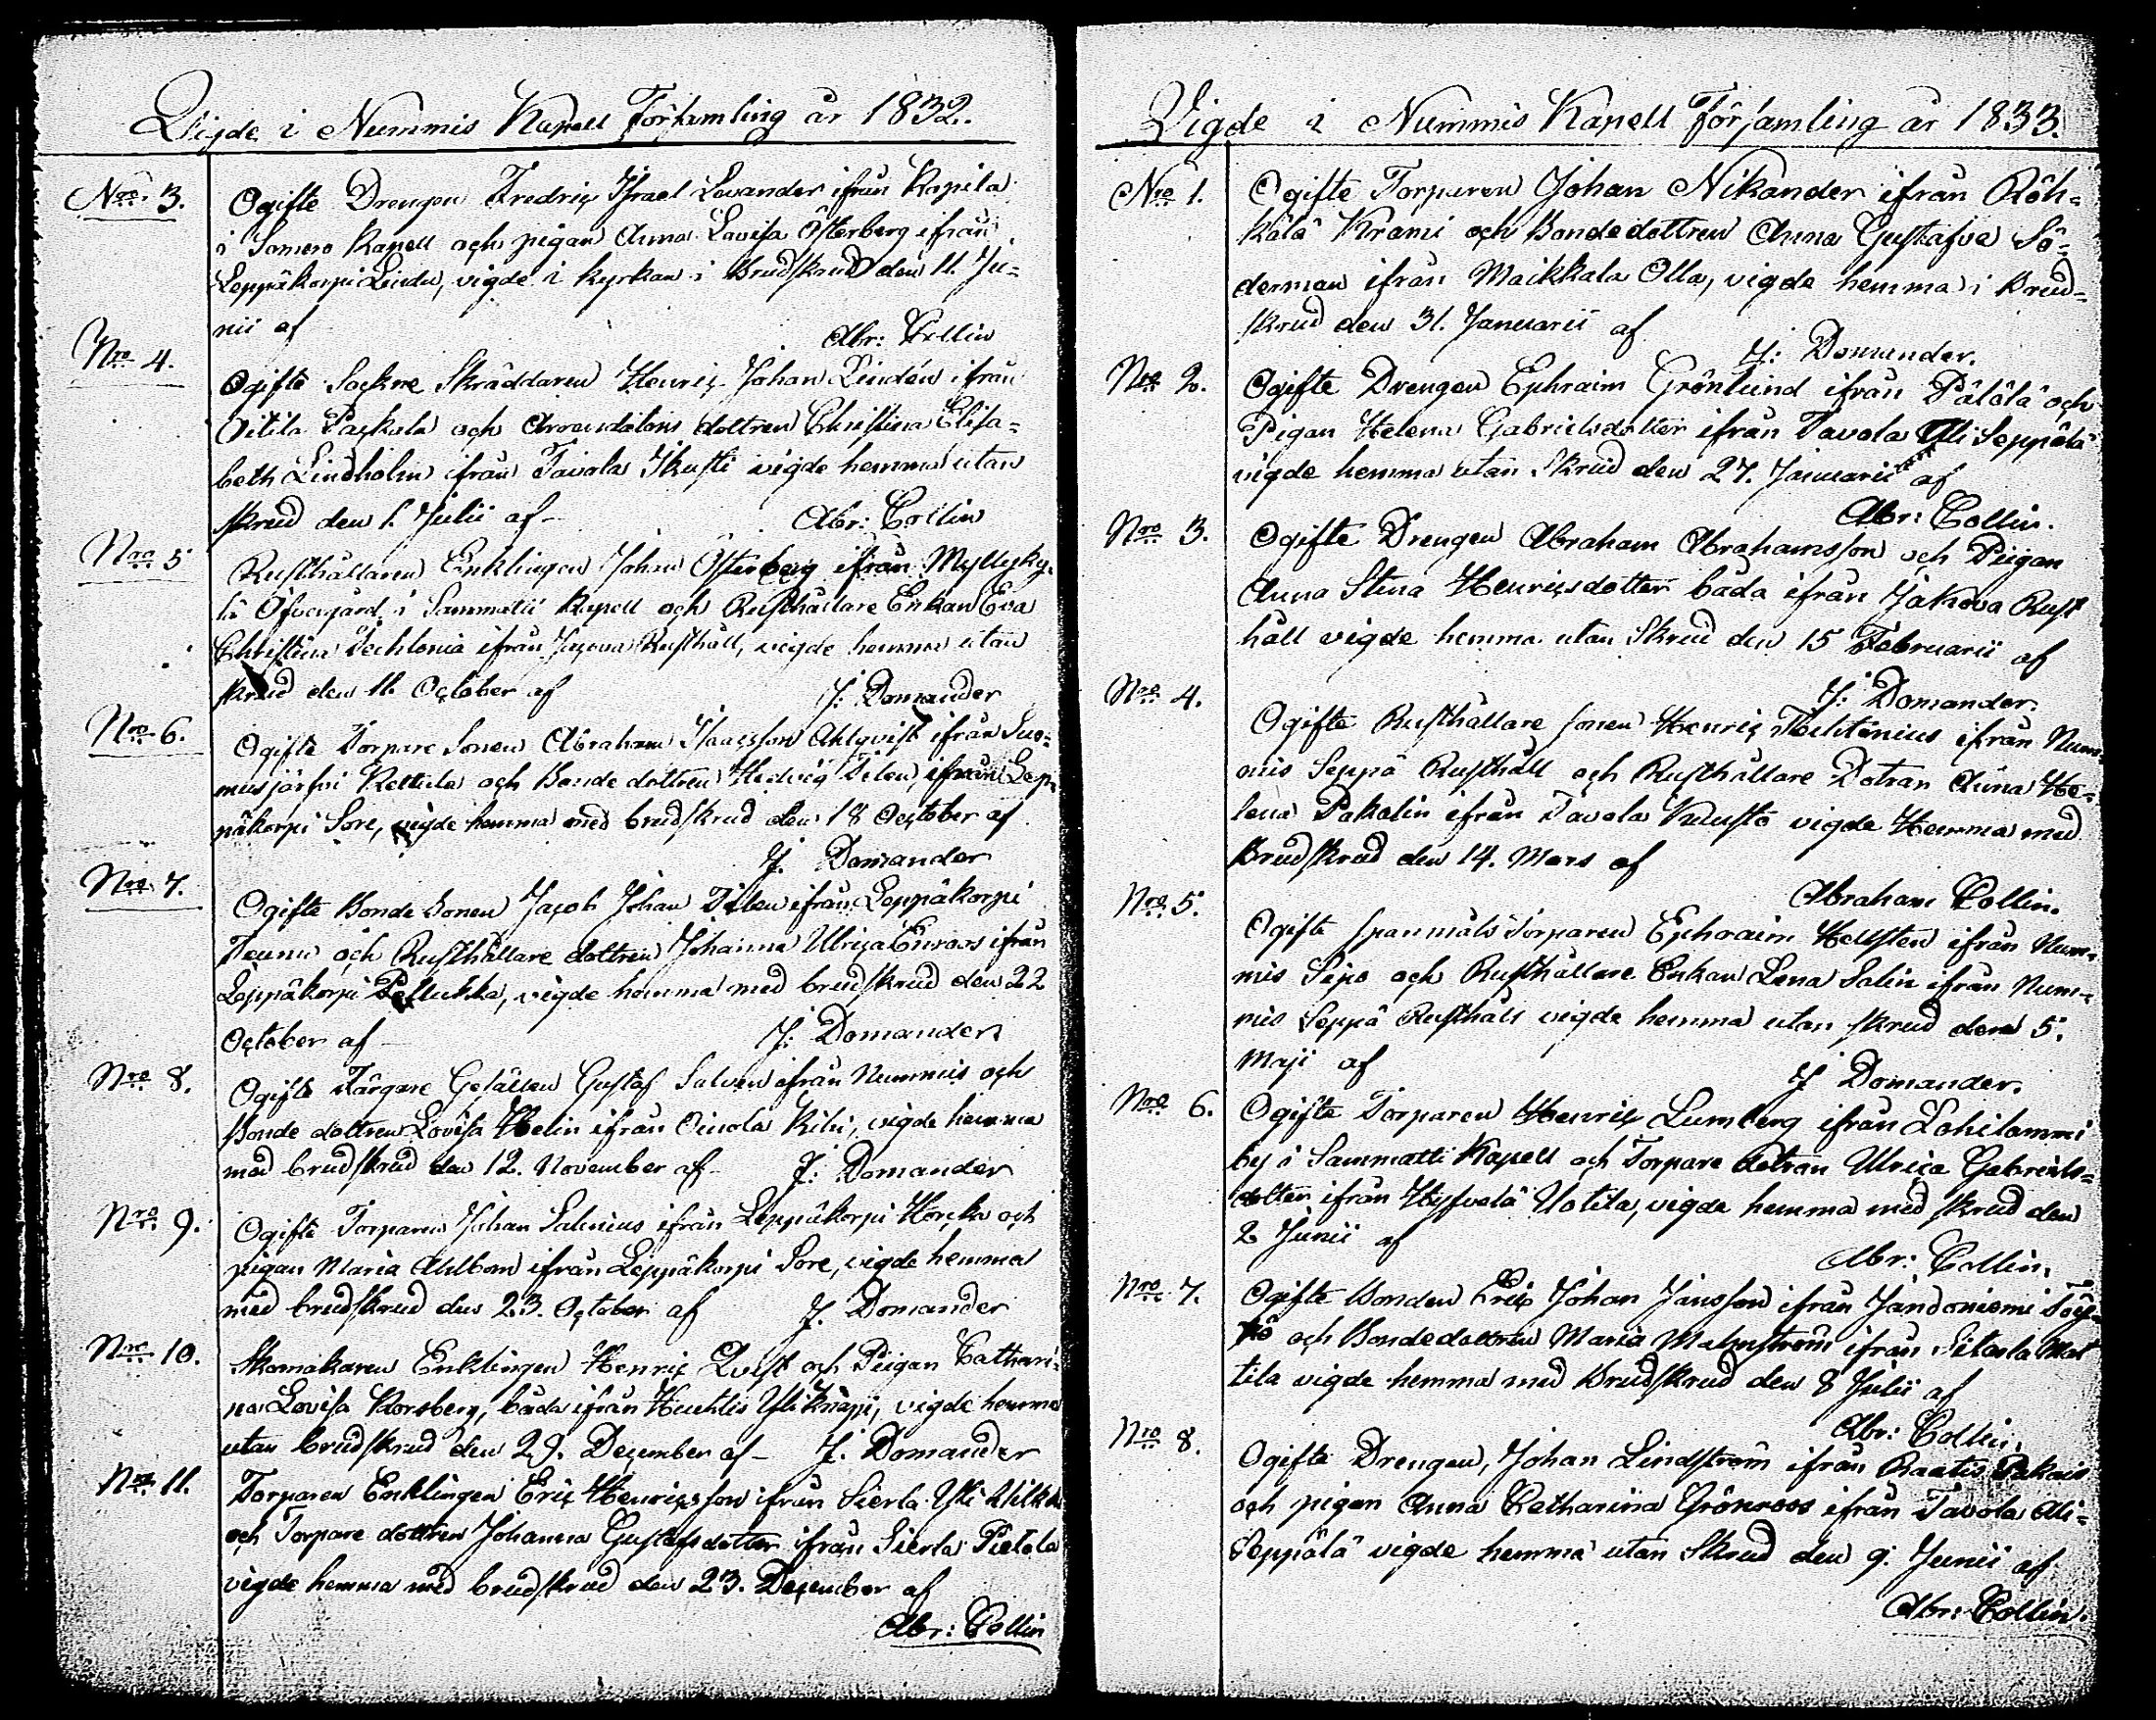 Vigde i Nummis Kapell Församling år 1832.
Nro 3. Ogifte Drengen Fredric Israel Lavander ifrån Kopila
i Somero Kapell och pigan Anna Lovisa Österberg ifrån
Leppäkorpi Lindu, vigde i kyrkan i Brudskrud den 11. Ju-
nii af Abr: Collin
Nro 4. Ogifte Sockne Skräddaren Henric Johan Lindén ifrån
Oitila Packala och Arrendators dottren Christina Elisa-
beth Lindholm ifrån Tavola Skusti vigde hemma utan
skrud den 1. Julii af Abr: Collin
Nro 5 Rusthållaren Enklingen Johan Österberg ifrån Myllyky-
lä Öfvergård i Sammatti Kapell och Rusthållare Enkan Eva
Christina ifrån Rusthåll, vigde hemma utan
skrud den 11. October af J: Domander
Nro 6. Ogifte Torpare Sonen Abraham Isaacsson Ahlqvist ifrån Suo-
musjärfvi Kettula och Bonde dottren Hedvig Tilen, ifrån Lep-
päkorpi Sore, vigde hemma med brudskrud den 18 October af
J. Domander
Nro 7. Ogifte Bonde Sonen Jacob Johan Tilen ifrån Leppäkorpi
Teunu och Rusthållare dottren Johanna Ulrica Enroos ifrån
Leppäkorpi Pelluhka, vigde hemma med brudskrud den 22
October af J: Domander
Nro 8. Ogifte Färgare Gesällen Gustaf Salven ifrån Nummis och
Bonde dottren Lovisa Helin ifrån Oinola Kihi, vigde hemma
med brudskrud den 12. November af J: Domander
Nro 9. Ogifte Torparen Johan Salenius ifrån Leppäkorpi Hörcko och
pigan Maria Ahlbom ifrån Leppäkorpi Sore, vigde hemma
med brudskrud den 23. October af J. Domander
Nro 10. Skomakaren Enklingen Henric Qvist och Piigan Cathari-
na Lovisa Korsberg, båda ifrån Huhtis Yliknapi, vigde hemma
utan brudskrud den 29. December af J: Domander
Nro 11. Torparen Enklingen Eric Henricsson ifrån Sierla Yli
och Torpare dottren Johanna Gustafsdotter ifrån Sierla Pietola
vigde hemma med brudskrud den 23. December af
Abr: Collin
Vigde i Nummis Kapell Församling år 1833.
Nro 1. Ogifte Torparen Johan Nikander ifrån Röh-
kälä Krami och Bondedottren Anna Gustafva Sö-
derman ifrån Maikkala Olla, vigde hemma i Brud-
skrud den 31. Januarii af
J: Domander.
Nro 2. Ogifte Drengen Ephraim Grönlund ifrån Pälölä och
Pigan Helena Gabrielsdotter ifrån Tavola Ylli Seppälä
vigde hemma utan Skrud den 27. Januarii af
Abr: Collin.
Nro 3. Ogifte Drengen Abraham Abrahamsson och Piigan
Anna Stina Henricsdotter båda ifrån Jakova Rust
håll vigde hemma utan Skrud den 15 Februarii af
J: Domander.
Nro 4. Ogifte Rusthållare sonen Henric Thilenius ifrån Num-
mis Seppä Rusthåll och Rusthållare Dotran Anna He-
lena Pakalin ifrån Tavola vigde Hemma med
Brudskrud den 14. Mars af
Abraham Collin.
Nro 5. Ogifte spanmåls Torparen Ephraim Hellsten ifrån Num-
mis Sipo och Rusthållare Enkan Lena Salin ifrån Num-
mis Seppä Rusthåll vigde hemma utan skrud den 5.
Maji af
J Domander.
Nro 6. Ogifte Torparen Henric Lumberg ifrån Lohilammi
by i Sammatti Kapell och Torpare dotran Ulrica Gabriels-
dotter ifrån Hyfvelä Uotila, vigde hemma med skrud den
2 Junii af
Abr: Collin.
Nro 7. Ogifte Bonden Eric Johan Jansson ifrån Jandoniemi
och Bondedottren Maria Malmström ifrån Sitarla Mat
tila vigde hemma med Brudskrud den 8 Julii af
Abr: Collin.
Nro 8. Ogifte Drengen, Johan Lindström ifrån Raatis Pakais
och pigan Anna Catharina Grönroos ifrån Tavola Ali-
Seppälä vigde hemma utan Skrud den 9. Junii af
Abr: Collin.